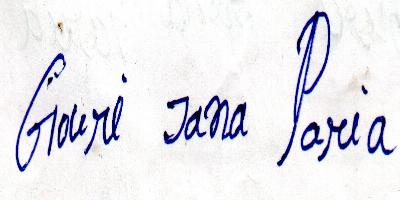 Gouri Jana Paria